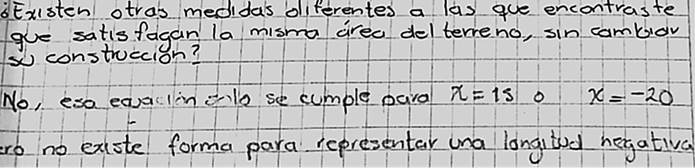 ¿Existen otras medidas diferentes a las que encontraste
que satisfagan la misma área del terreno, sin cambiar
su construcción?
No, esa ecuación sólo se cumple para x = 15 o x = -20
ero no existe forma para representar una longitud negativa